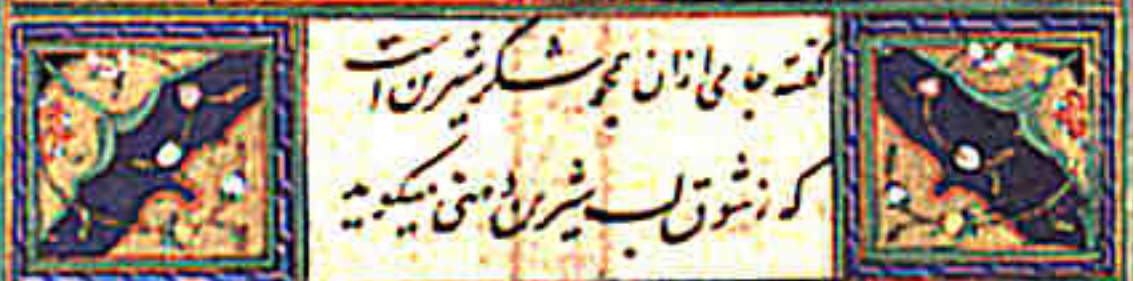 گفته جامی ازان همچو شکر شیرین است
که ز شوق لب شیرین دهنی میگوید